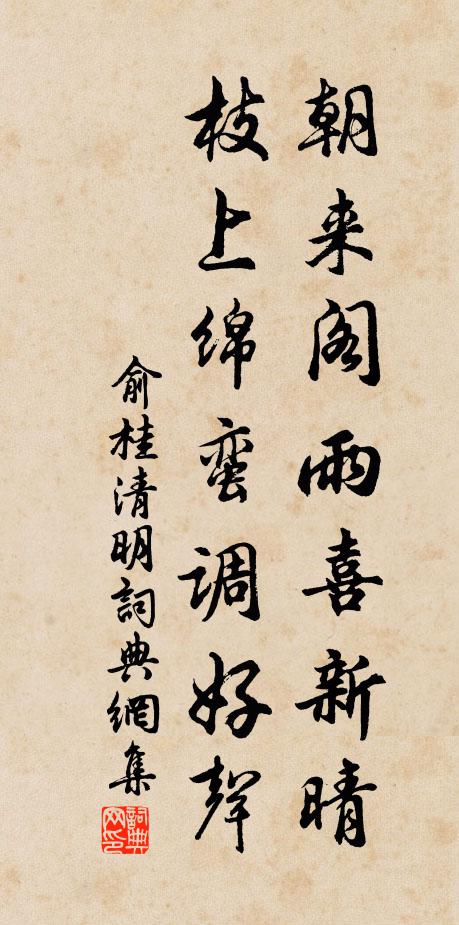 朝来阁雨喜新晴
枝上绵蛮调好聲
俞桂清明詞典網集
詞典网印